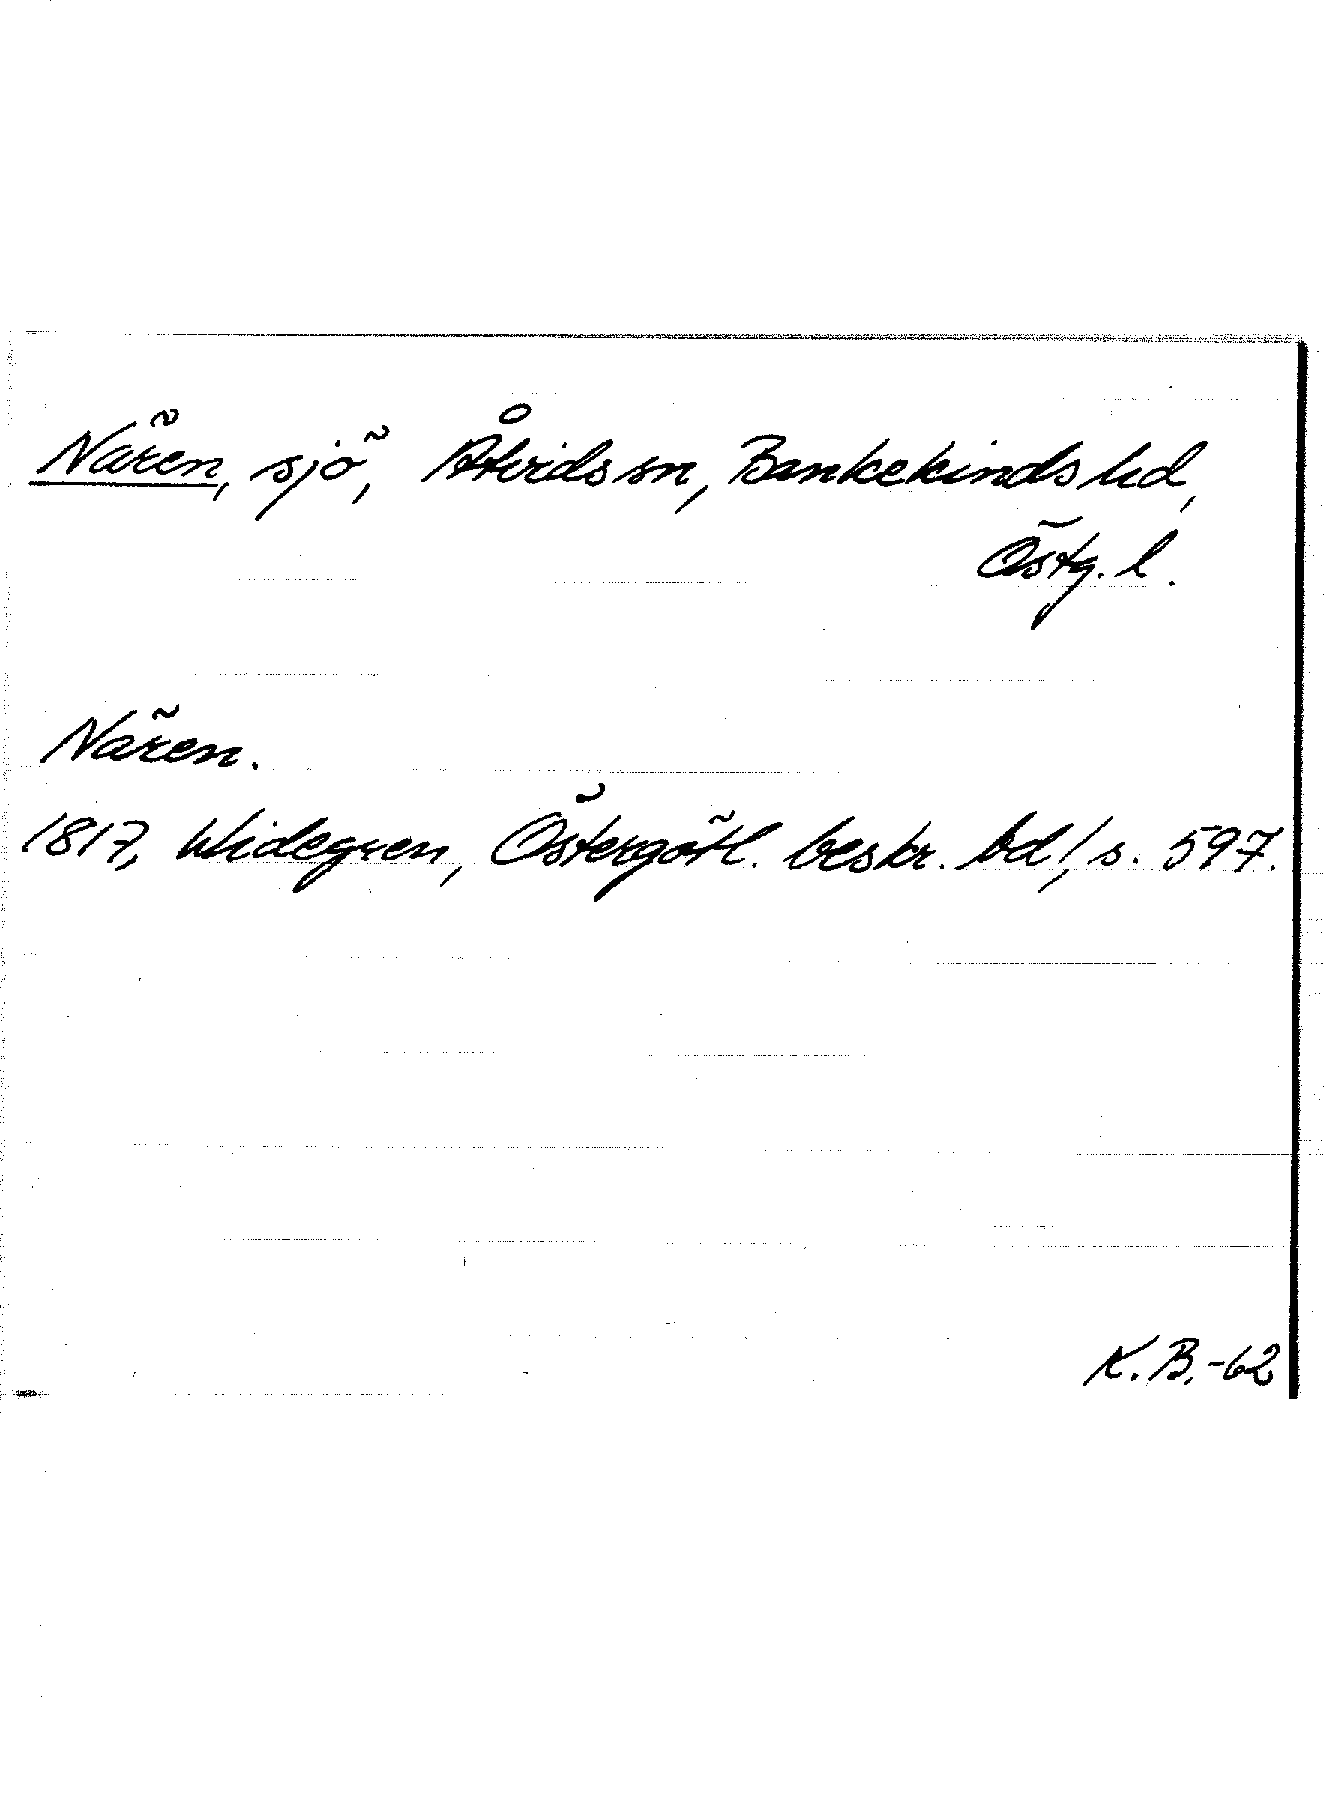 Nären, sjö, Åtvids sn, Bankekinds hd,
Östg. l.
Nären.
1817, Widegren, Östergötl. beskr. bd 1, s. 597.
K. B. -62